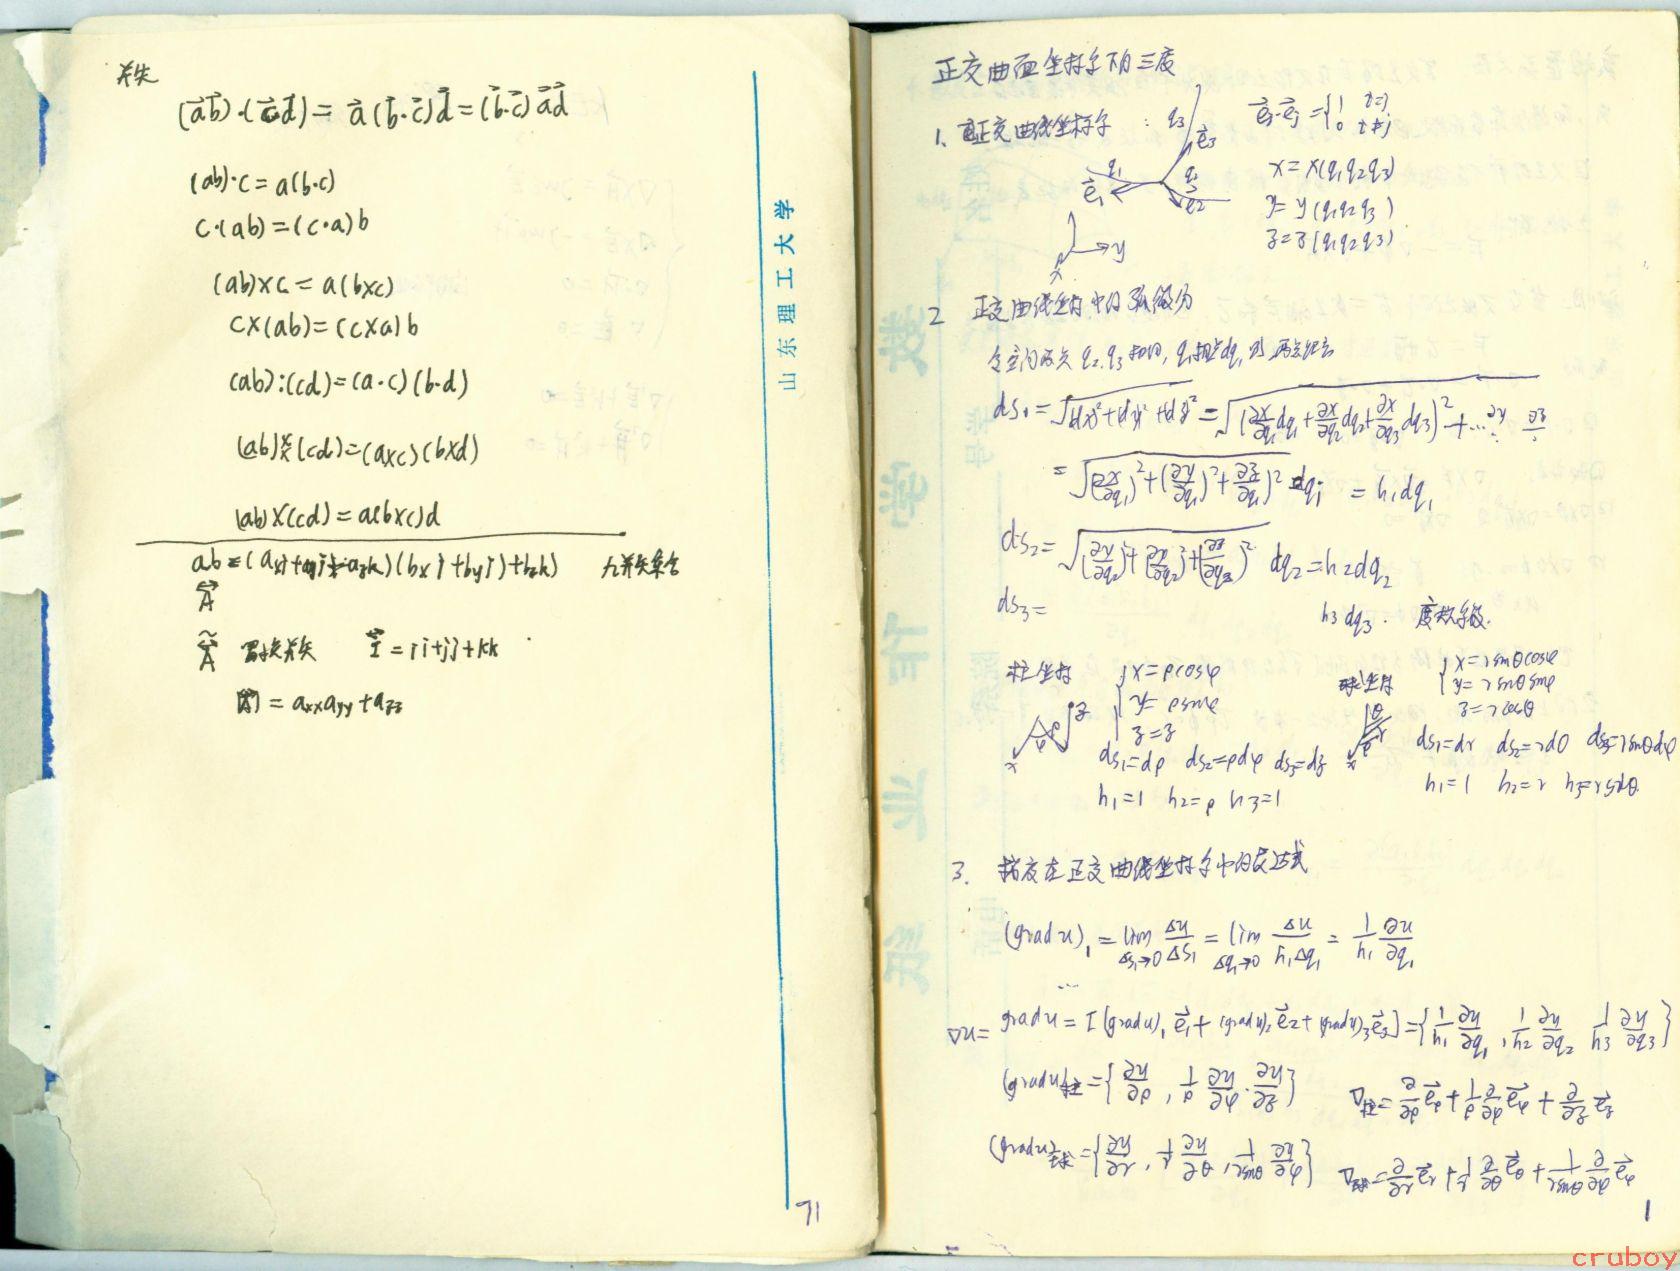 并矢
(a⃗b⃗)·(c⃗d⃗) = a⃗(b⃗·c⃗)d⃗ = (b⃗·c⃗)a⃗d⃗
(ab)·c = a(b·c)
c·(ab) = (c·a)b
(ab)×c = a(b×c)
c×(ab) = (c×a)b
(ab):(cd) = (a·c)(b·d)
(ab)××(cd) = (a×c)(b×d)
(ab)×(cd) = a(b×c)d
ab = (axi+ayj+azk)(bxi+byj+bzk) 九并矢集合
A
Ã 置换并矢 I = ii+jj+kk
= axx ayy + azz
山东理工大学
71
正交曲面坐标系下的三度
1. 正交曲线坐标系 : q3 e⃗3 e⃗i·e⃗j = {1 i=j
0 i≠j
q1 e⃗1 q2 e⃗2 x = x(q1q2q3)
y = y(q1q2q3)
x y z = z(q1q2q3)
2 正交曲线坐标中的弧微分
令空间两点 q2,q3 相同, q1相差dq1 则 两点距离
ds1 = √((dx)²+(dy)²+(dz)²) = √((∂x/∂q1 dq1 + ∂x/∂q2 dq2 + ∂x/∂q3 dq3)² + ... ∂y ∂z
= √((∂x/∂q1)²+(∂y/∂q1)²+(∂z/∂q1)²) dq1 = h1dq1
ds2 = √((∂x/∂q2)²+(∂y/∂q2)²+(∂z/∂q2)²) dq2 = h2dq2
ds3 = h3dq3. 度规系数.
柱坐标 {x = ρcosφ
y = ρsinφ
z = z
ds1=dρ ds2=ρdφ ds3=dz
h1=1 h2=ρ h3=1
球坐标 {x = rsinθcosφ
y = rsinθsinφ
z = rcosθ
ds1=dr ds2=rdθ ds3=rsinθdφ
h1=1 h2=r h3=rsinθ
3. 梯度在正交曲线坐标系中的表达式
(grad u)1 = lim Δs1→0 Δu/Δs1 = lim Δq1→0 Δu/(h1Δq1) = 1/h1 ∂u/∂q1
...
∇u = grad u = [(grad u)1 e⃗1 + (grad u)2 e⃗2 + (grad u)3 e⃗3] = {1/h1 ∂u/∂q1, 1/h2 ∂u/∂q2 1/h3 ∂u/∂q3}
(grad u)柱 = {∂u/∂ρ, 1/ρ ∂u/∂φ, ∂u/∂z} ∇柱 = ∂/∂ρ e⃗ρ + 1/ρ ∂/∂φ e⃗φ + ∂/∂z e⃗z
(grad u)球 = {∂u/∂r, 1/r ∂u/∂θ, 1/(rsinθ) ∂u/∂φ} ∇球 = ∂/∂r e⃗r + 1/r ∂/∂θ e⃗θ + 1/(rsinθ) ∂/∂φ e⃗φ
1
cruboy